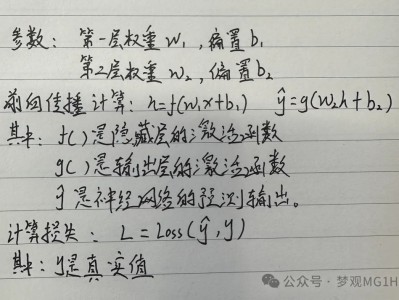 参数: 第一层权重 w₁, 偏置 b₁
第2层权重 w₂, 偏置 b₂
前向传播计算: h=f(w₁x+b₁) ŷ=g(w₂h+b₂)
其中: f( )是隐藏层的激活函数
g( )是输出层的激活函数
ŷ是神经网络的预测输出。
计算损失: L=Loss(ŷ,y)
其中: y是真实值
公众号·梦观MG1H